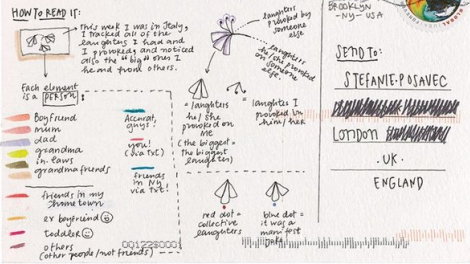 HOW TO READ IT:
This week I was in Italy,
I tracked all of the
laughters I had and
I provoked, and noticed
also the "big" ones I
heard from others.
Each element
is a PERSON:
boyfriend
mum
dad
grandma
in-laws
grandmafriends
friends in my
hometown
ex boyfriend
toddler
others
(other people/not friends)
guys!
you!
(via txt)
friends
in NY
via txt!
laughters
provoked by
someone
else
laughters
he/she provoked
on someone
else
= laughters
he/she
provoked on
me
(the biggest =
the biggest
laughter)
= laughters I
provoked in
him/her
red dot =
collective
laughters
blue dot =
it was a
BROOKLYN
-NY- USA
SEND TO:
STEFANIE POSAVEC
LONDON
.UK.
ENGLAND